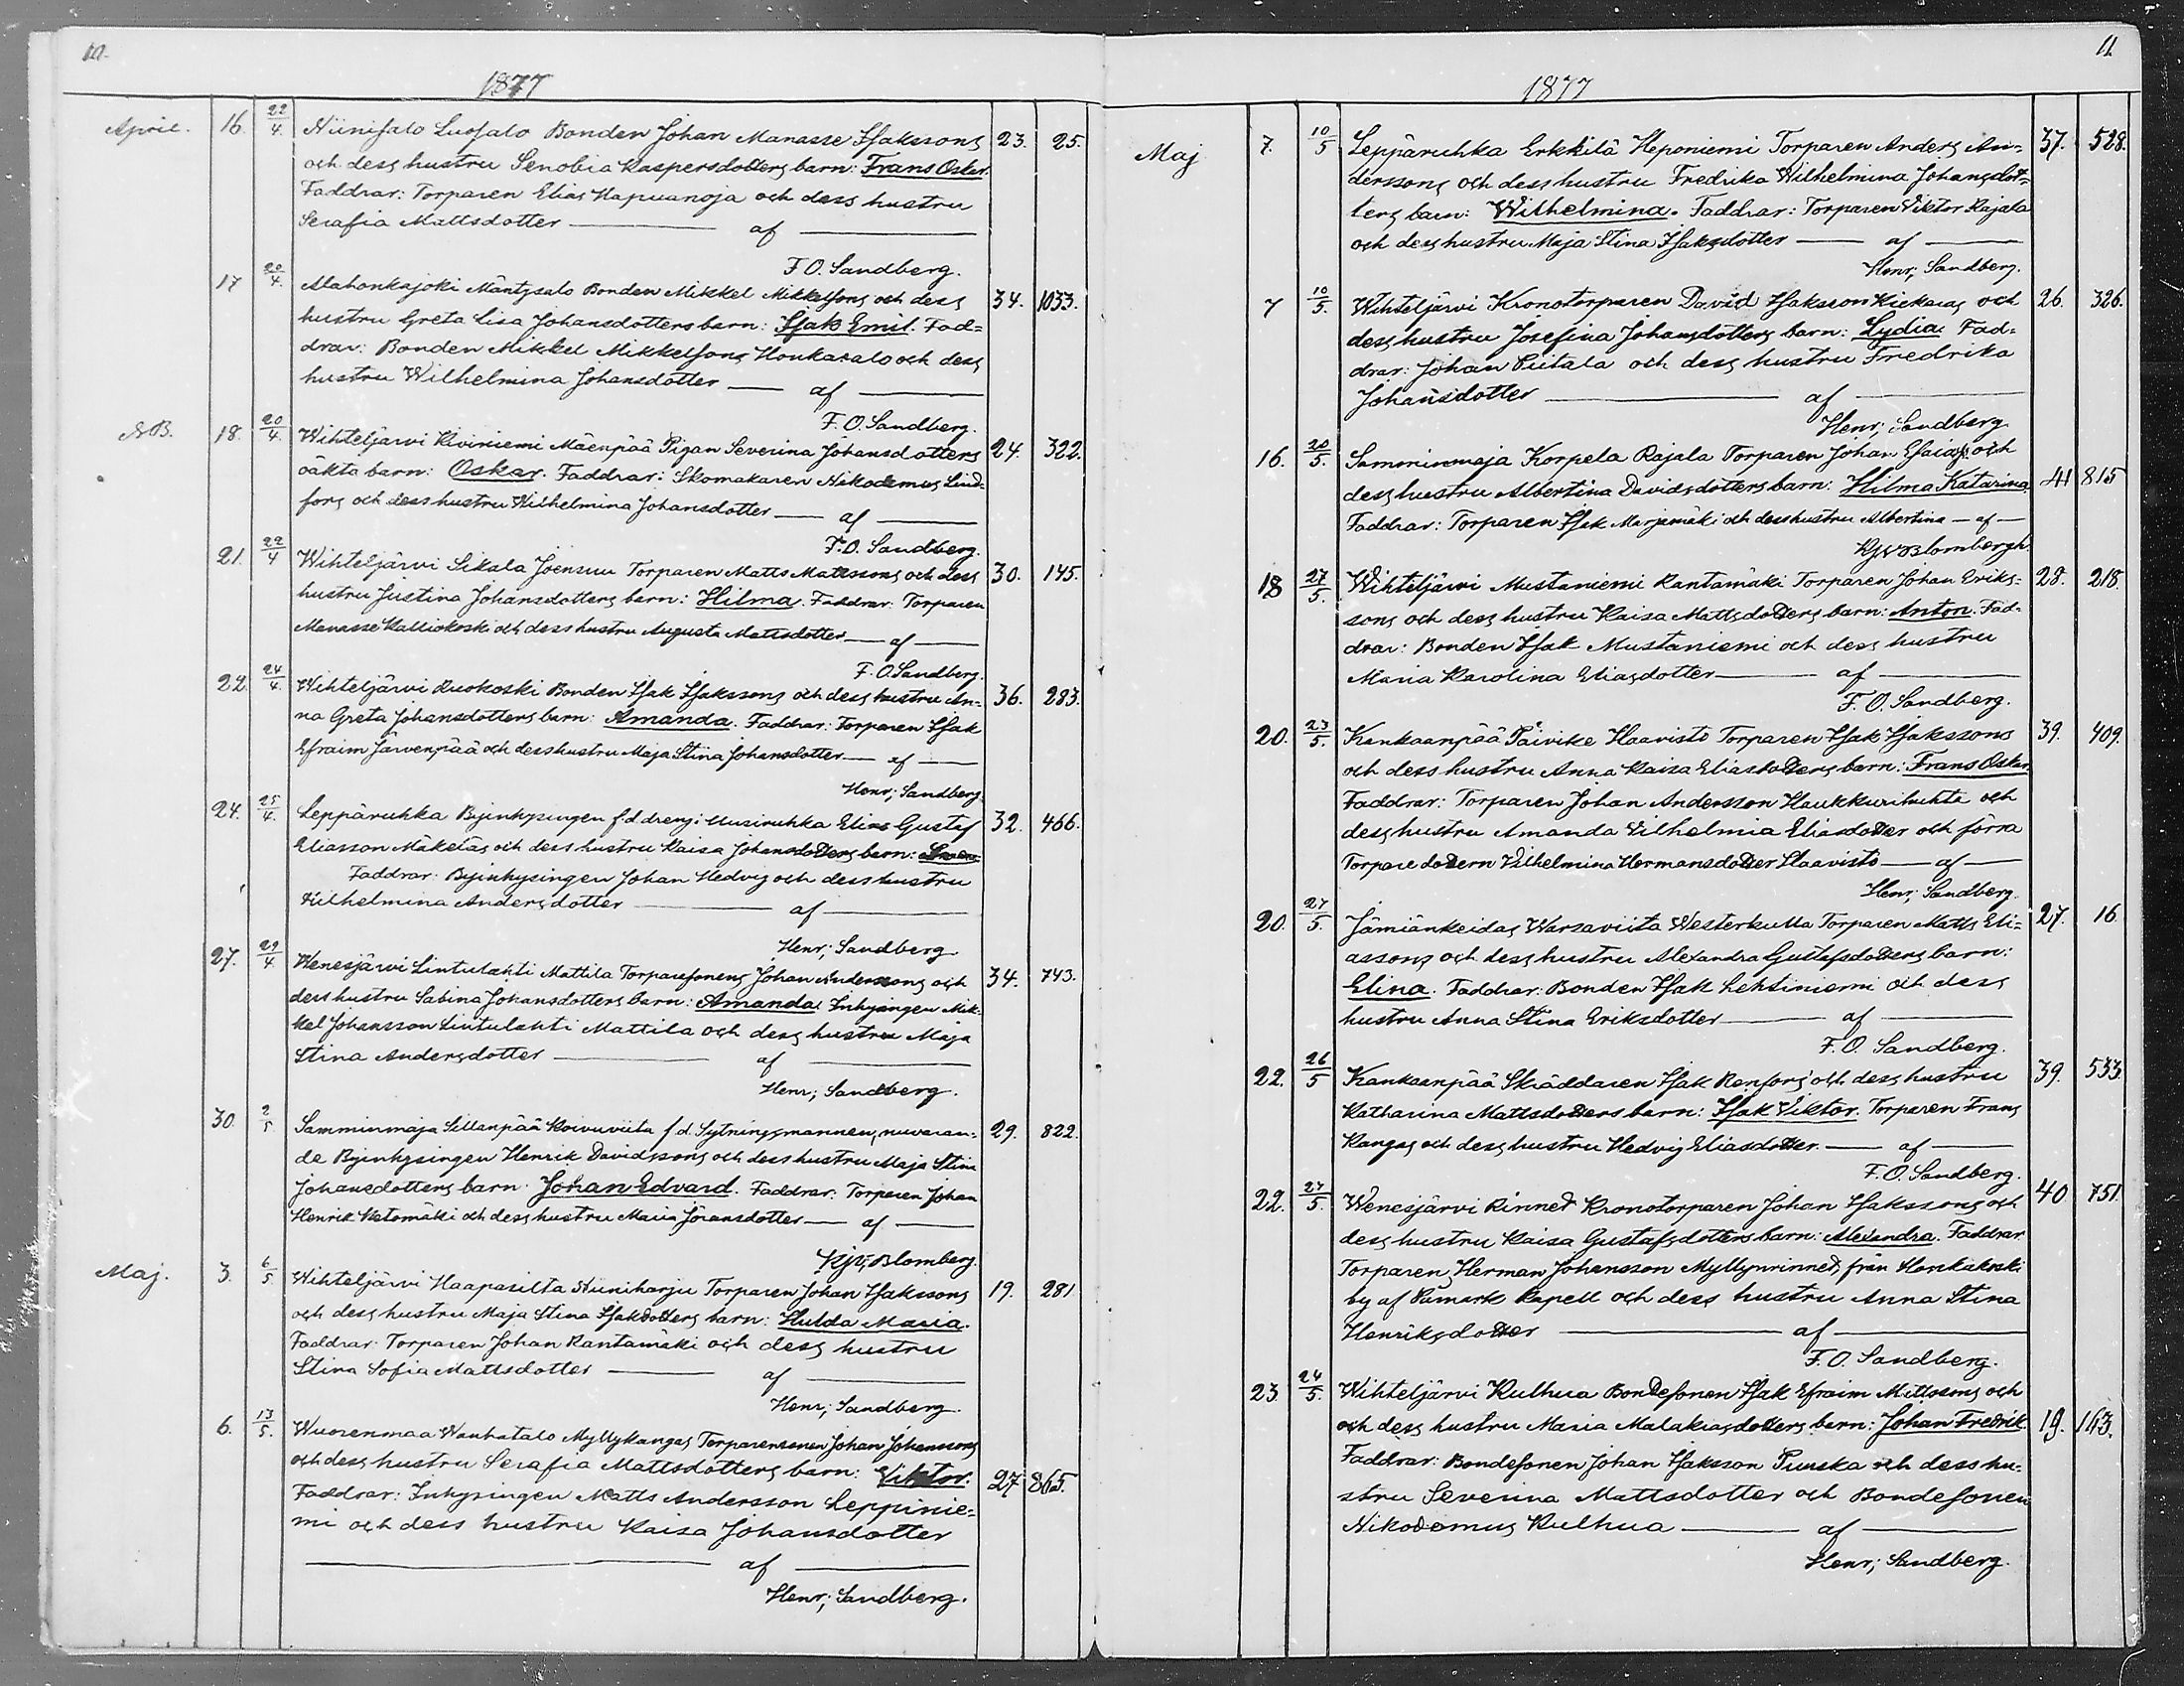 10.
1877
April. 16. 22/4. Niinisalo Luosalo Bonden Johan Manasse Isakssons 23. 25.
och dess hustru Senobia Kaspersdotters barn: Frans Oskar.
Faddrar: Torparen Elias Hapuanoja och dess hustru
Serafia Mattsdotter — af —
F.O. Sandberg.
17 20/4. Alahonkajoki Mäntysalo Bonden Mikkel Mikkelsons och dess 34. 1033.
hustru Greta Lisa Johansdotters barn: Isak Emil. Fad=
drar: Bonden Mikkel Mikkelsons Honkasalo och dess
hustru Wilhelmina Johansdotter — af —
F.O. Sandberg.
NB. 18. 20/4. Wihteljärvi Kiviniemi Mäenpää Pigan Severina Johansdotters 24. 322.
oäkta barn: Oskar. Faddrar: Skomakaren Nikodemus Lind=
fors och dess hustru Wilhelmina Johansdotter — af —
F.O. Sandberg.
21. 22/4 Wihteljärvi Sikala Joensuu Torparen Matts Mattssons och dess 30. 145.
hustru Justina Johansdotters barn: Hilma. Faddrar: Torparen
Manasse Kalliokoski och dess hustru Augusta Mattsdotter — af —
F.O. Sandberg.
22. 24/4. Wihteljärvi Ruokoski Bonden Isak Isakssons och dess hustru An= 36. 283.
na Greta Johansdotters barn: Amanda. Faddrar: Torparen Isak
Efraim Järvenpää och dess hustru Maja Stina Johansdotter — af —
Henr; Sandberg.
24. 25/4. Leppäruhka Byinhysingen f.d. dreng i Uusiruhka Elias Gustaf 32. 466.
Eliasson Mäkeläs och dess hustru Kaisa Johansdotters barn:
Faddrar: Byinhysingen Johan Hedvig och dess hustru
Wilhelmina Andersdotter — af —
Henr; Sandberg
27. 29/4. Wenesjärvi Lintulahti Mattila Torparesonens Johan Anderssons och 34. 743.
dess hustru Sabina Johansdotters barn: Amanda. Inhysingen Mik=
kel Johansson Lintulahti Mattila och dess hustru Maja
Stina Andersdotter — af —
Henr; Sandberg.
30. 2/5. Samminmaja Sillanpää Koivuviita f.d. Sytningsmannen, nuvaran= 29. 822.
de Byinhysingen Henrik Davidssons och dess hustru Maja Stina
Johansdotters barn: Johan Edvard. Faddrar: Torparen Johan
Henrik Ketomäki och dess hustru Maria Joransdotter — af —
Kjv; Blomberg.
Maj. 3. 6/5. Wihteljärvi Haapasilta Niiniharju Torparen Johan Isakssons 19. 281
och dess hustru Maja Stina Isaksdotters barn: Hulda Maria.
Faddrar: Torparen Johan Rantamäki och dess hustru
Stina Sofia Mattsdotter — af —
Henr; Sandberg.
6. 13/5. Wuorenmaa Wanhatalo Myllykangas Torparensonen Johan Johanssons
och dess hustru Serafia Mattsdotters barn: Viktor. 27 865.
Faddrar: Inhysingen Matts Andersson Leppinie=
mi och dess hustru Kaisa Johansdotter
— af —
Henr; Sandberg.
11
1877
Maj 7. 10/5 Leppäruhka Erkkilä Heponiemi Torparen Anders An= 37. 528.
derssons och dess hustru Fredrika Wilhelmina Johansdot=
ters barn: Wilhelmina. Faddrar: Torparen Viktor Rajala
och dess hustru Maja Stina Isaksdotter — af —
Henr; Sandberg.
7 10/5. Wihteljärvi Kronotorparen David Isaksson Kiekaras och 26. 326.
dess hustru Josefina Johansdotters barn: Lydia. Fad=
drar: Johan Piitala och dess hustru Fredrika
Johansdotter — af —
Henr; Sandberg.
16. 20/5. Samminmaja Korpela Rajala Torparen Johan Esaiass: och
dess hustru Albertina Davidsdotters barn: Hilma Katarina. 41 815
Faddrar: Torparen Isak Marjamäki och dess hustru Albertina — af —
Kjv Blombergh.
18 27/5. Wihteljärvi Mustaniemi Rantamäki Torparen Johan Eriks= 28. 218.
sons och dess hustru Kaisa Mattsdotters barn: Anton. Fad=
drar: Bonden Isak Mustaniemi och dess hustru
Maria Karolina Eliasdotter — af —
F.O. Sandberg.
20. 23/5. Kankaanpää Päivike Haavisto Torparen Isak Isakssons 39. 409.
och dess hustru Anna Kaisa Eliasdotters barn: Frans Oskar.
Faddrar: Torparen Johan Andersson Haukkurihuhta och
dess hustru Amanda Vilhelmia Eliasdotter och förra
Torparedottern Vilhelmina Hermansdotter Haavisto — af —
Henr; Sandberg.
20. 27/5. Jämiänkeidas Warsaviita Westerkulla Torparen Matts Eli= 27. 16
assons och dess hustru Alexandra Gustafsdotters barn:
Elina. Faddrar: Bonden Isak Lehtiniemi och dess
hustru Anna Stina Eriksdotter — af —
F.O. Sandberg.
22. 26/5 Kankaanpää Skräddaren Isak Renfors och dess hustru 39. 533.
Katharina Mattsdotters barn: Isak Viktor. Torparen Frans
Kangas och dess hustru Hedvig Eliasdotter — af —
F.O. Sandberg.
22. 27/5. Wenesjärvi Rinned Kronotorparen Johan Isakssons och 40 751
dess hustru Kaisa Gustafsdotters barn: Alexandra. Faddrar
Torparen Herman Johansson Myllynrinned, från Honkakoski
by af Påmark Kapell och dess hustru Anna Stina
Henriksdotter — af —
F.O. Sandberg.
23. 24/5. Wihteljärvi Kulhua Bondesonen Isak Efraim Mattssons och
och dess hustru Maria Malakiasdotters barn: Johan Fredrik. 19. 163.
Faddrar: Bondesonen Johan Isaksson Puuska och dess hu=
stru Severina Mattsdotter och Bondesonen
Nikodemus Kulhua — af —
Henr; Sandberg.